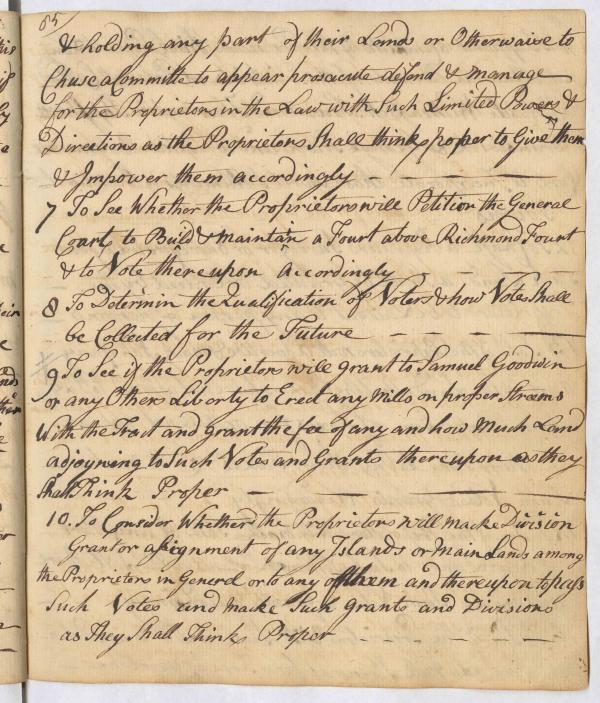 65
& holding any part of their Lands or Otherwaise to
Chuse a Committe to appear prosacute defend & manage
for the Proprietors in the Law with Such Limited Powers &
Directions as the Proprietors Shall think proper to Give them
& Impower them accordingly
7 To See Whether the Proprietors will Petition the General
Court to Build & maintain a Fourt above Richmond Fourt
& to Vote thereupon Accordingly
8 To Determin the Qualification of Voters & how Votes Shall
be Collected for the Future
9 To See if the Proprietors will grant to Samuel Goodwin
or any Others Liberty to Erect any Mills on proper Streems
With the Tract and grant the fee of any and how Much Land
adjoyning to Such Votes and Grants thereupon as they
Shall Think Proper
10. To Consider Whether the Proprietors will macke Division
Grant or assignment of any Islands or Main Lands among
the Proprietors in General or to any of them and thereupon to pass
Such Votes and macke Such Grants and Divisions
as They Shall Think Proper